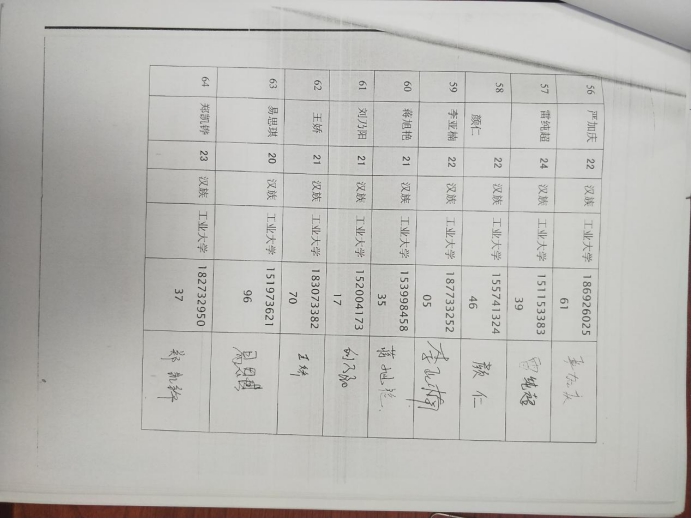 56 严加庆 22 汉族 工业大学 186926025
61
57 雷纯超 24 汉族 工业大学 151153383
39 雷纯超
58 颜仁 22 汉族 工业大学 155741324
46 颜仁
59 李亚楠 22 汉族 工业大学 187733252
05 李亚楠
60 蒋旭艳 21 汉族 工业大学 153998458
35 蒋旭艳
61 刘乃阳 21 汉族 工业大学 152004173
17 刘乃阳
62 王娇 21 汉族 工业大学 183073382
70 王娇
63 易思琪 20 汉族 工业大学 151973621
96 易思琪
64 郑凯骅 23 汉族 工业大学 182732950
37 郑凯骅